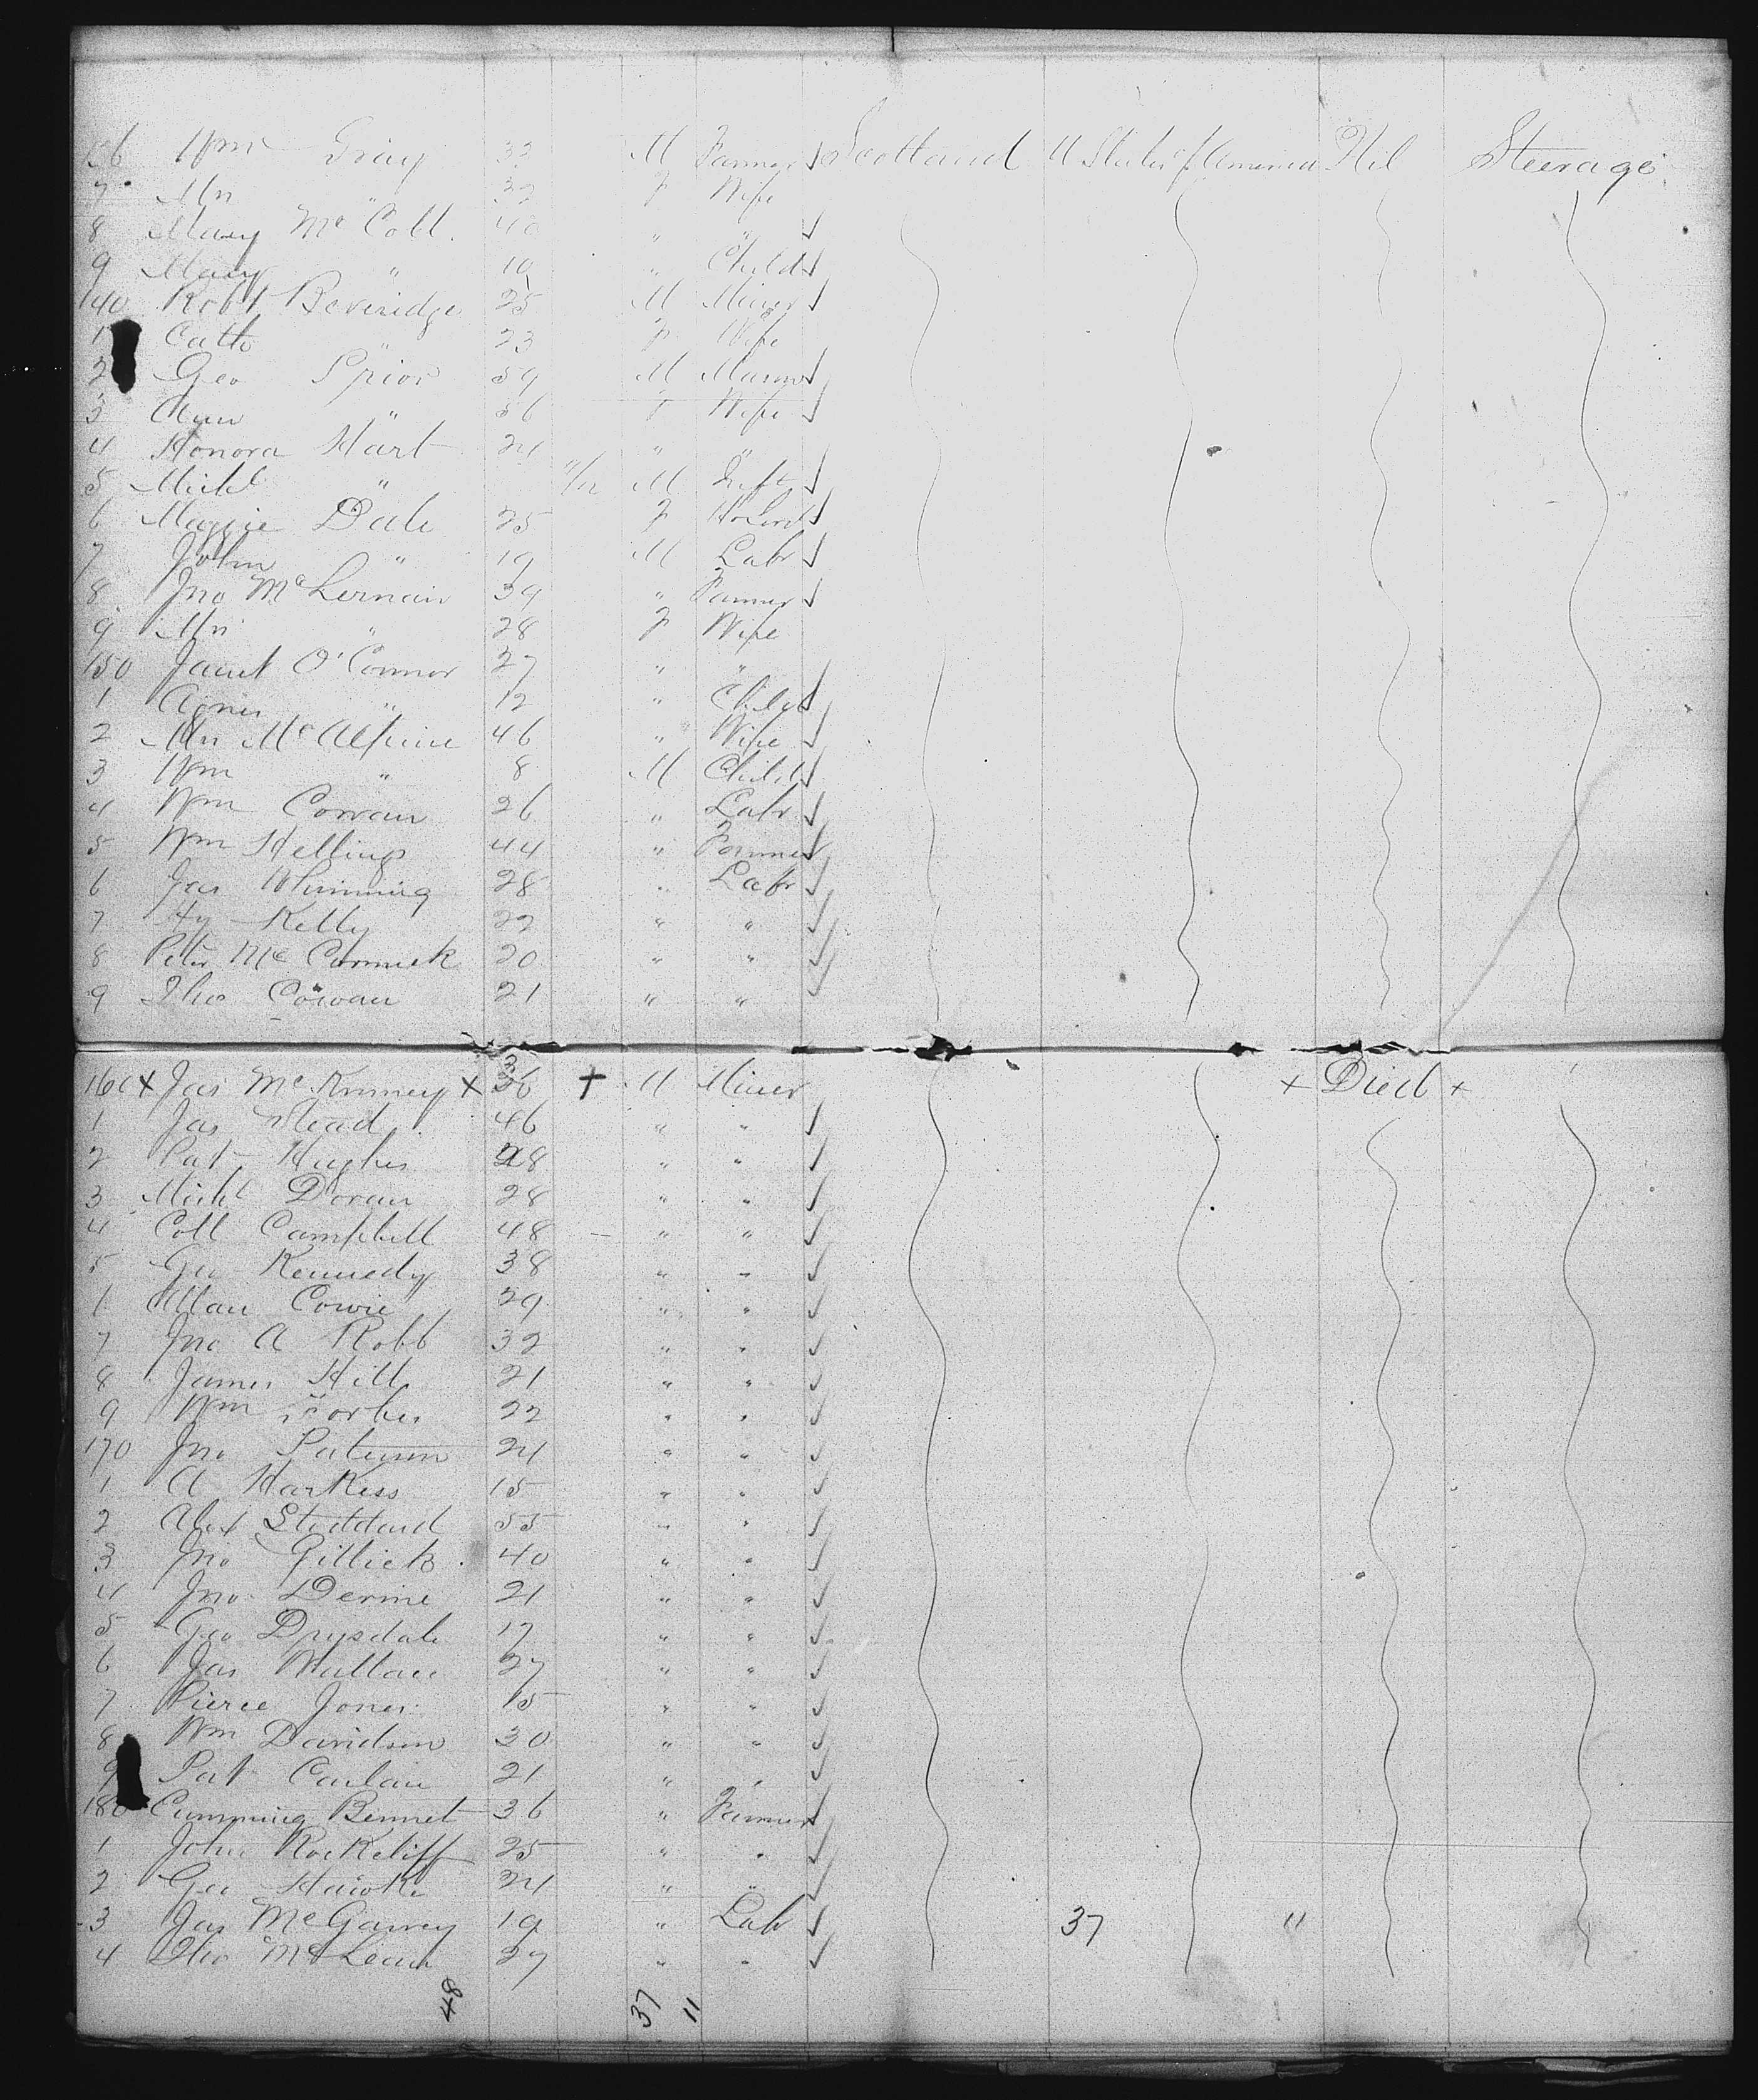 136 Wm Gray 33 M Farmer Scotland U States of America Nil Steerage
7 Mrs " 32 F Wife
8 Mary McColl 40 " "
9 Mary " 10 " Child
140 Robt Beveridge 25 M Miner
1 Cath " 23 F Wife
2 Geo Prior 59 M Mason
3 Ann " 56 F Wife
4 Honora Hart 24 " "
5 Michl " 11/12 M Inft
6 Maggie Dale 25 F
7 John " 19 M Labr
8 Jno McLernain 39 " Farmer
9 Mrs " 28 F Wife
150 Janet O'Connor 27 " "
1 Agnes " 12 " Child
2 Mrs McAlpine 46 " Wife
3 Wm " 8 M Child
4 Wm Cowan 26 " Labr
5 Wm Hellings 44 " Farmer
6 Jas Whimming 28 " Labr
7 Hy Kelly 22 " "
8 Peter McCormick 20 " "
9 Thos Cowan 21 " "
160 + Jas McKinney + 36 + M Miner + Died +
1 Jas Stead 46 " "
2 Pat Hughes 28 " "
3 Michl Doran 28 " "
4 Coll Campbell 48 " "
5 Geo Kennedy 38 " "
6 Allan Cowie 29 " "
7 Jno A Robb 32 " "
8 James Hill 21 " "
9 Wm Forbes 22 " "
170 Jno Paterson 24 " "
1 A Harkess 15 " "
2 Alex Stoddard 55 " "
3 Jno Gillick 40 " "
4 Jno Devine 21 " "
5 Geo Drysdale 17 " "
6 Jas Wallace 27 " "
7 Pierce Jones 15 " "
8 Wm Davidson 30 " "
9 Pat Conlain 21 " "
180 Cumming Bennet 36 " Farmer
1 John Rockcliff 25 " "
2 Geo Hawke 24 " "
3 Jas McGarvey 19 " Labr 37 11
4 Thos McLean 27 " "
48 37 11